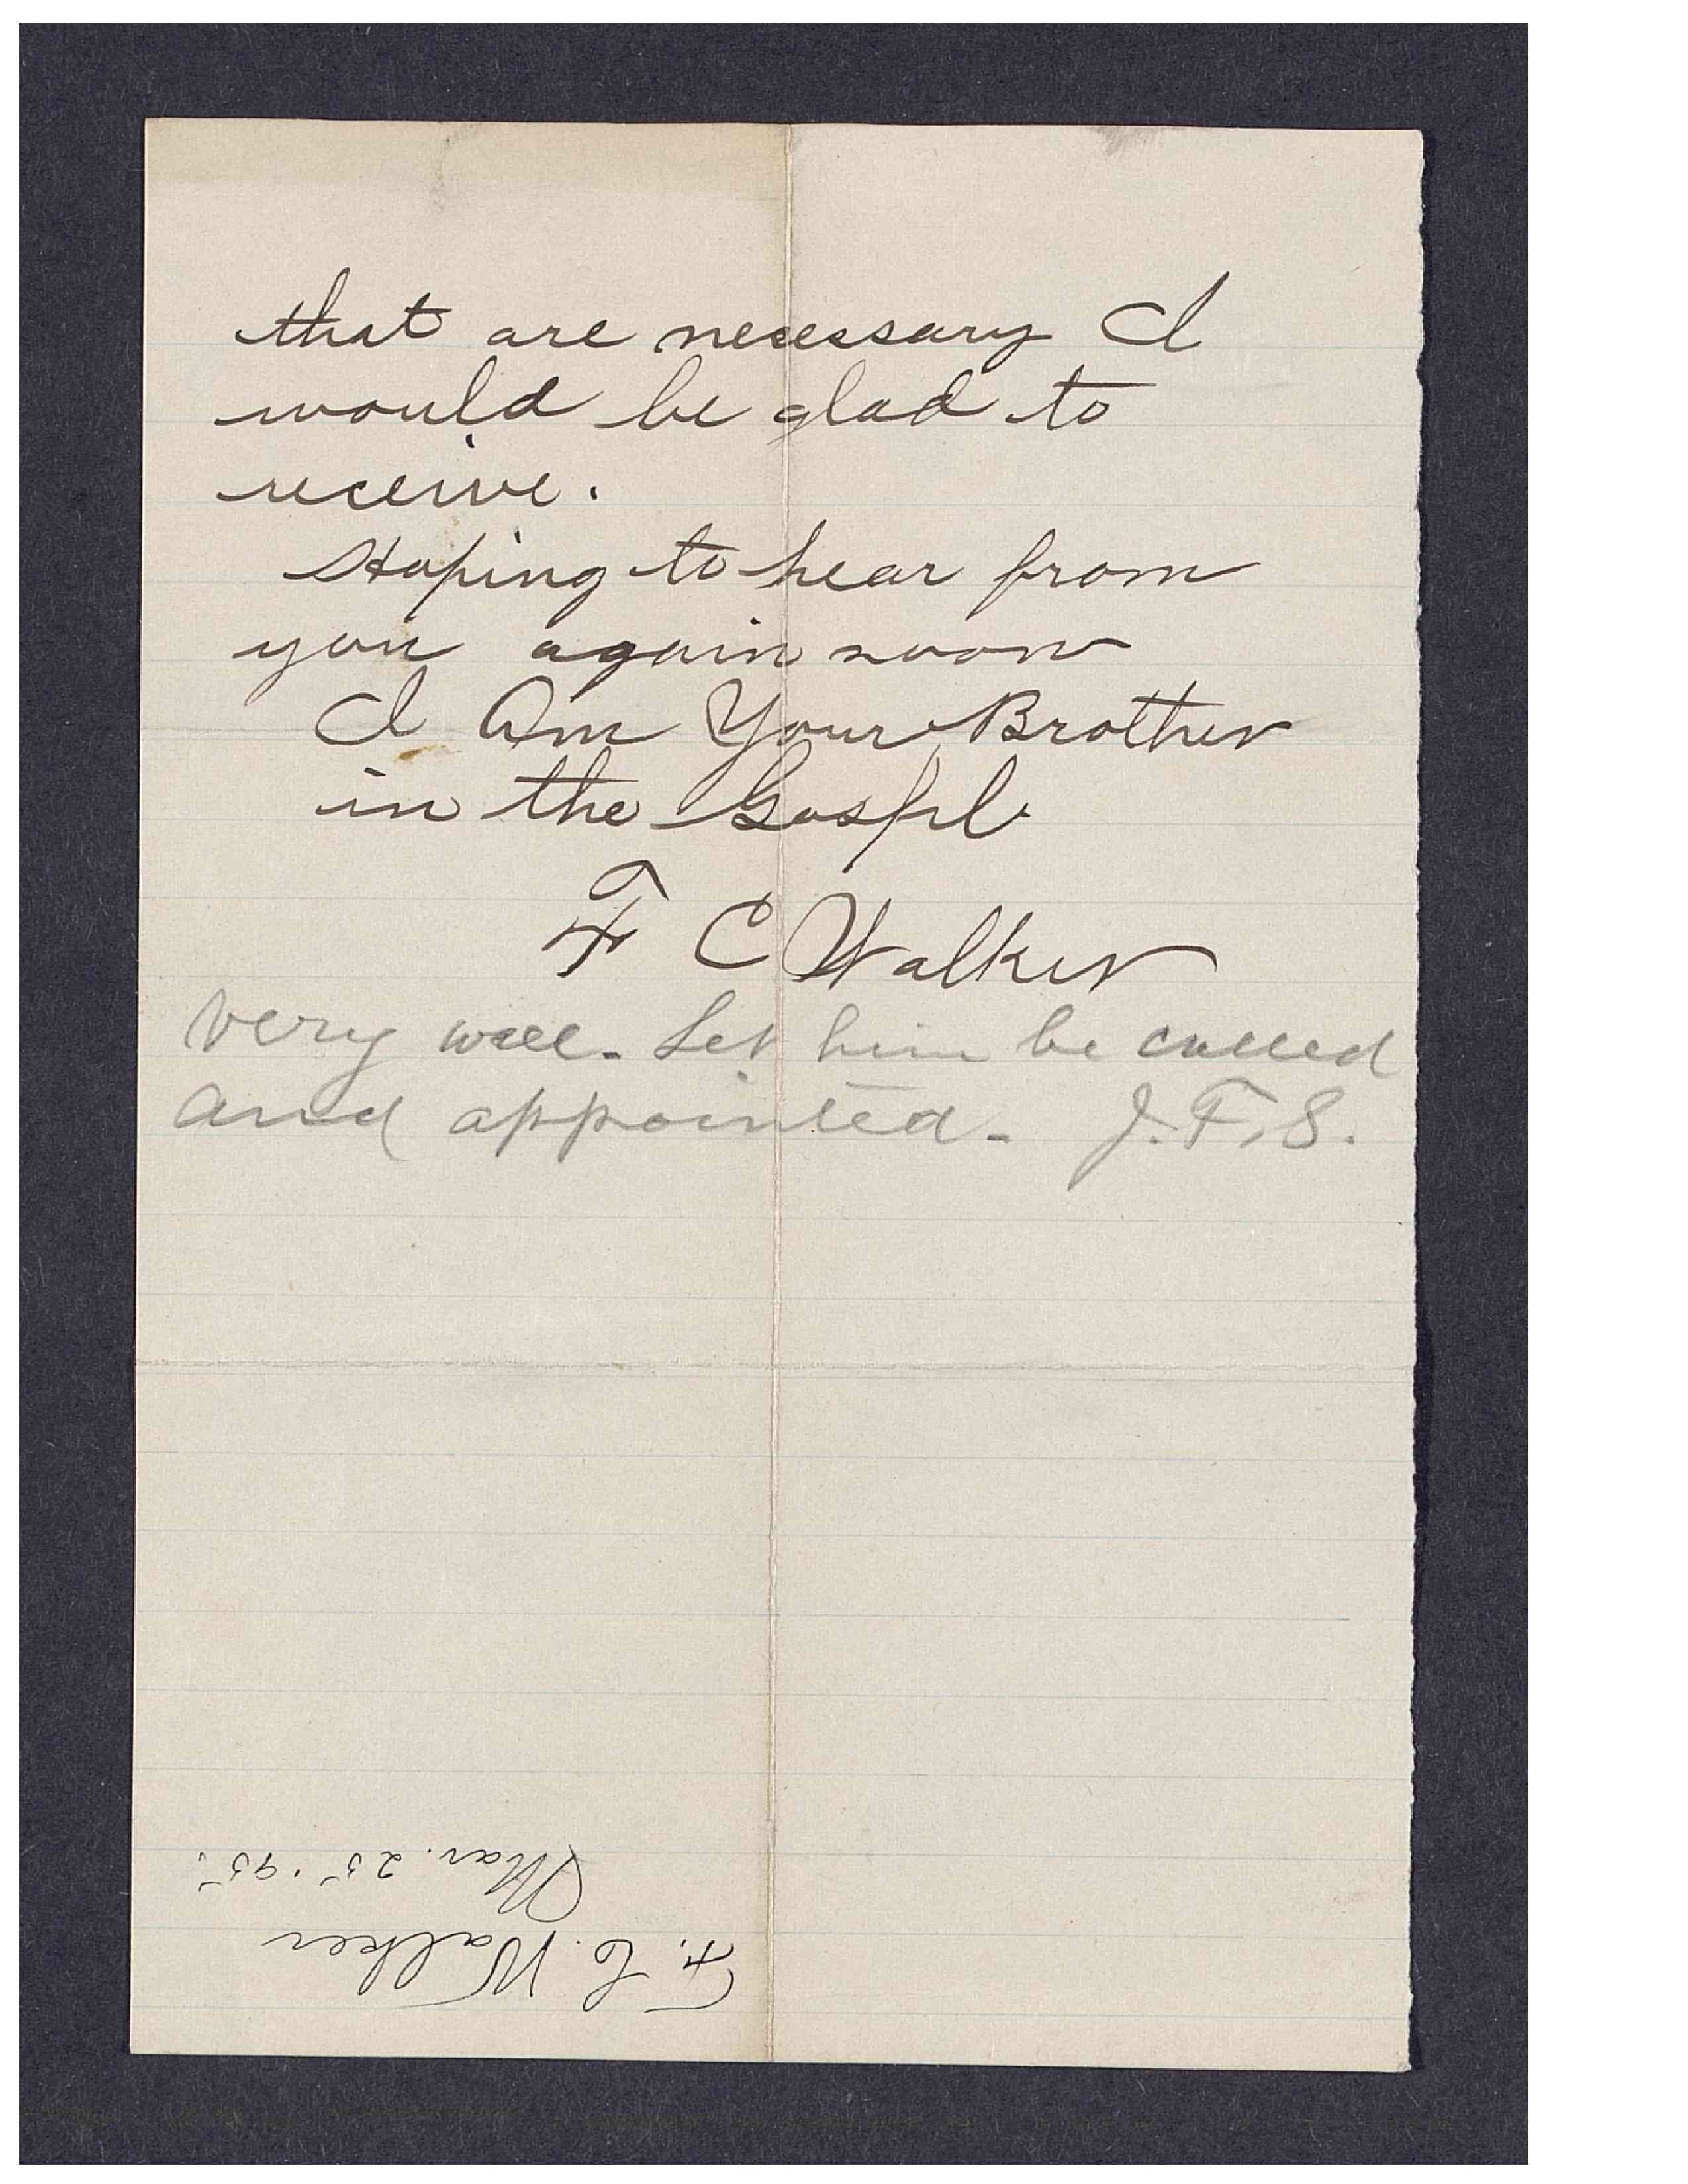 that are necessary I
would be glad to
receive.
Hoping to hear from
you again soon
I Am Your Brother
in the Gospel
F C Walker
Very well. Let him be called
and appointed. J. F. S.
F. C. Walker
Mar. 25 '95.